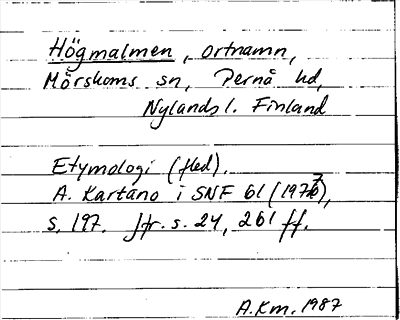 Högmalmen, ortnamn,
Mörskoms sn, Pernå hd,
Nylands l. Finland
Etymologi (fled).
A. Kartano i SNF 61 (1977),
s. 197. Jfr. s. 24, 261 ff.
A.Km. 1987